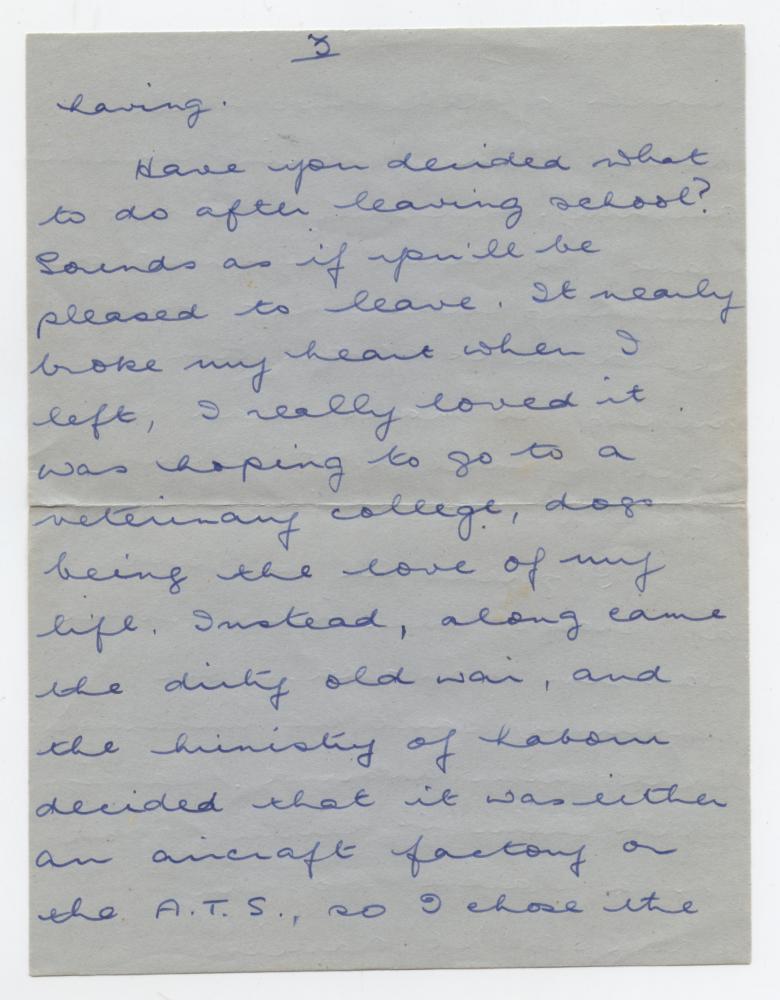 3
having.
Have you decided what
to do after leaving school?
Sounds as if you'll be
pleased to leave. It nearly
broke my heart when I
left, I really loved it.
was hoping to go to a
veterinary college, dogs
being the love of my
life. Instead, along came
the dirty old war, and
the Ministry of Labour
decided that it was either
an aircraft factory or
the A.T.S., so I chose the